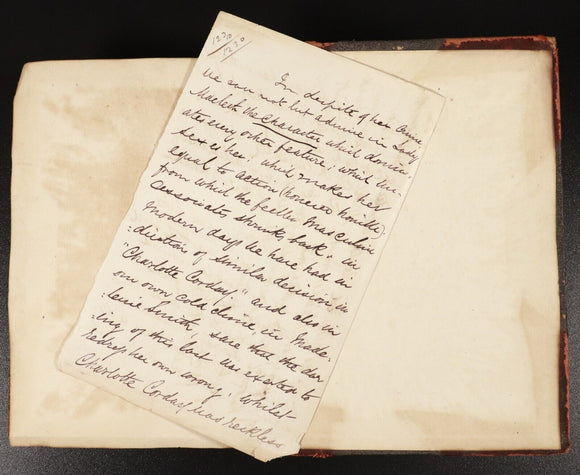 1230
1230
In despite of her crime
We can not but admire in Lady
Macbeth the Character which domin
ates every other feature; which un
sexes her; which makes her
equal to action (however horrible)
from which the feebler Masculine
Associate, shrunk back. in
Modern days we have had in
dication of similar decision in
"Charlotte Corday." and also in
our own cold clime, in Made
leine Smith. save that the dar
ing of this last was exerted to
redress her own wrong; whilst
Charlotte Corday was reckless